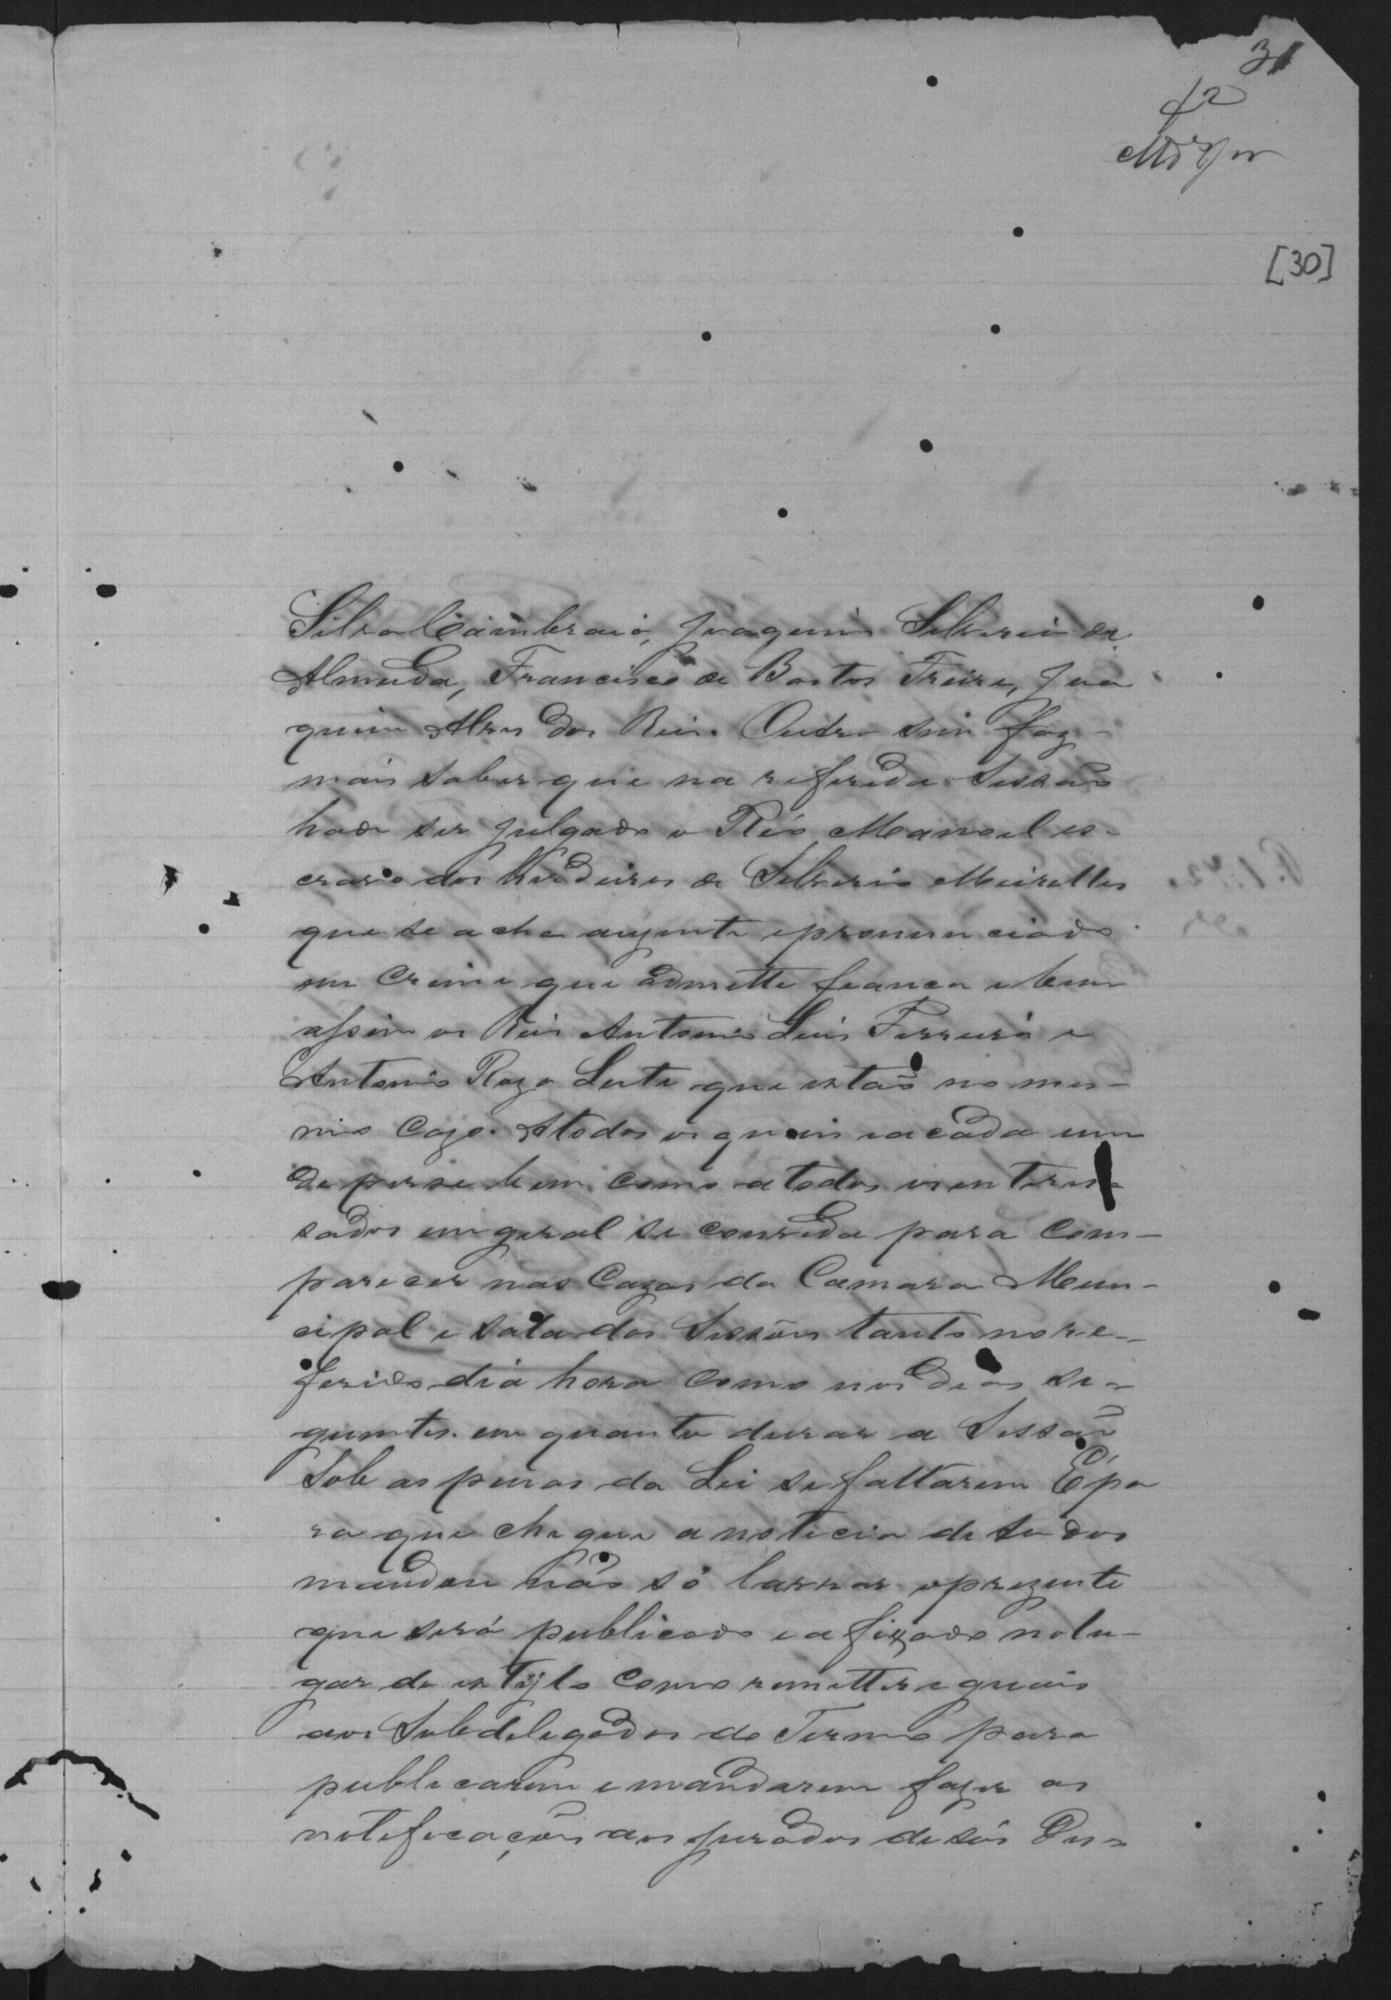 31
42
[30]
Silva Cambraia, Joaquim Silverio de
Almeida, Francisco de Bastos Freire, Joa
quim Alves dos Reis. Outro sim faz
mais saber que na referida Sessão
hade ser julgado o Réo Manoel es-
cravo dos Herdeiros de Silverio Meirelles
que se acha auzente e pronunciado
em Crime que admitte fiança e bem
assim os Reos Antonio Luis Ferreira e
Antonio Rozo Leite que estaõ no mes-
mo Cazo. A todos os quais e a cada um
de per se bem como a todos os interes
sados em geral se convida para com-
parecer nas Cazas da Camara Muni-
cipal e sala das Sessões tanto no re-
ferido dia hora como nos dias se-
guintes em quanto durar a Sessaõ
sob as penas da Lei se faltarem E pa
ra que chegue a noticia de todos
mandou não só lavrar o prezente
que será publicado e afixado no lu-
gar de estÿlo como remetter iguais
aos Subdelegados do Termo para
publicarem e mandarem fazer as
notificações aos jurados de seus Des-